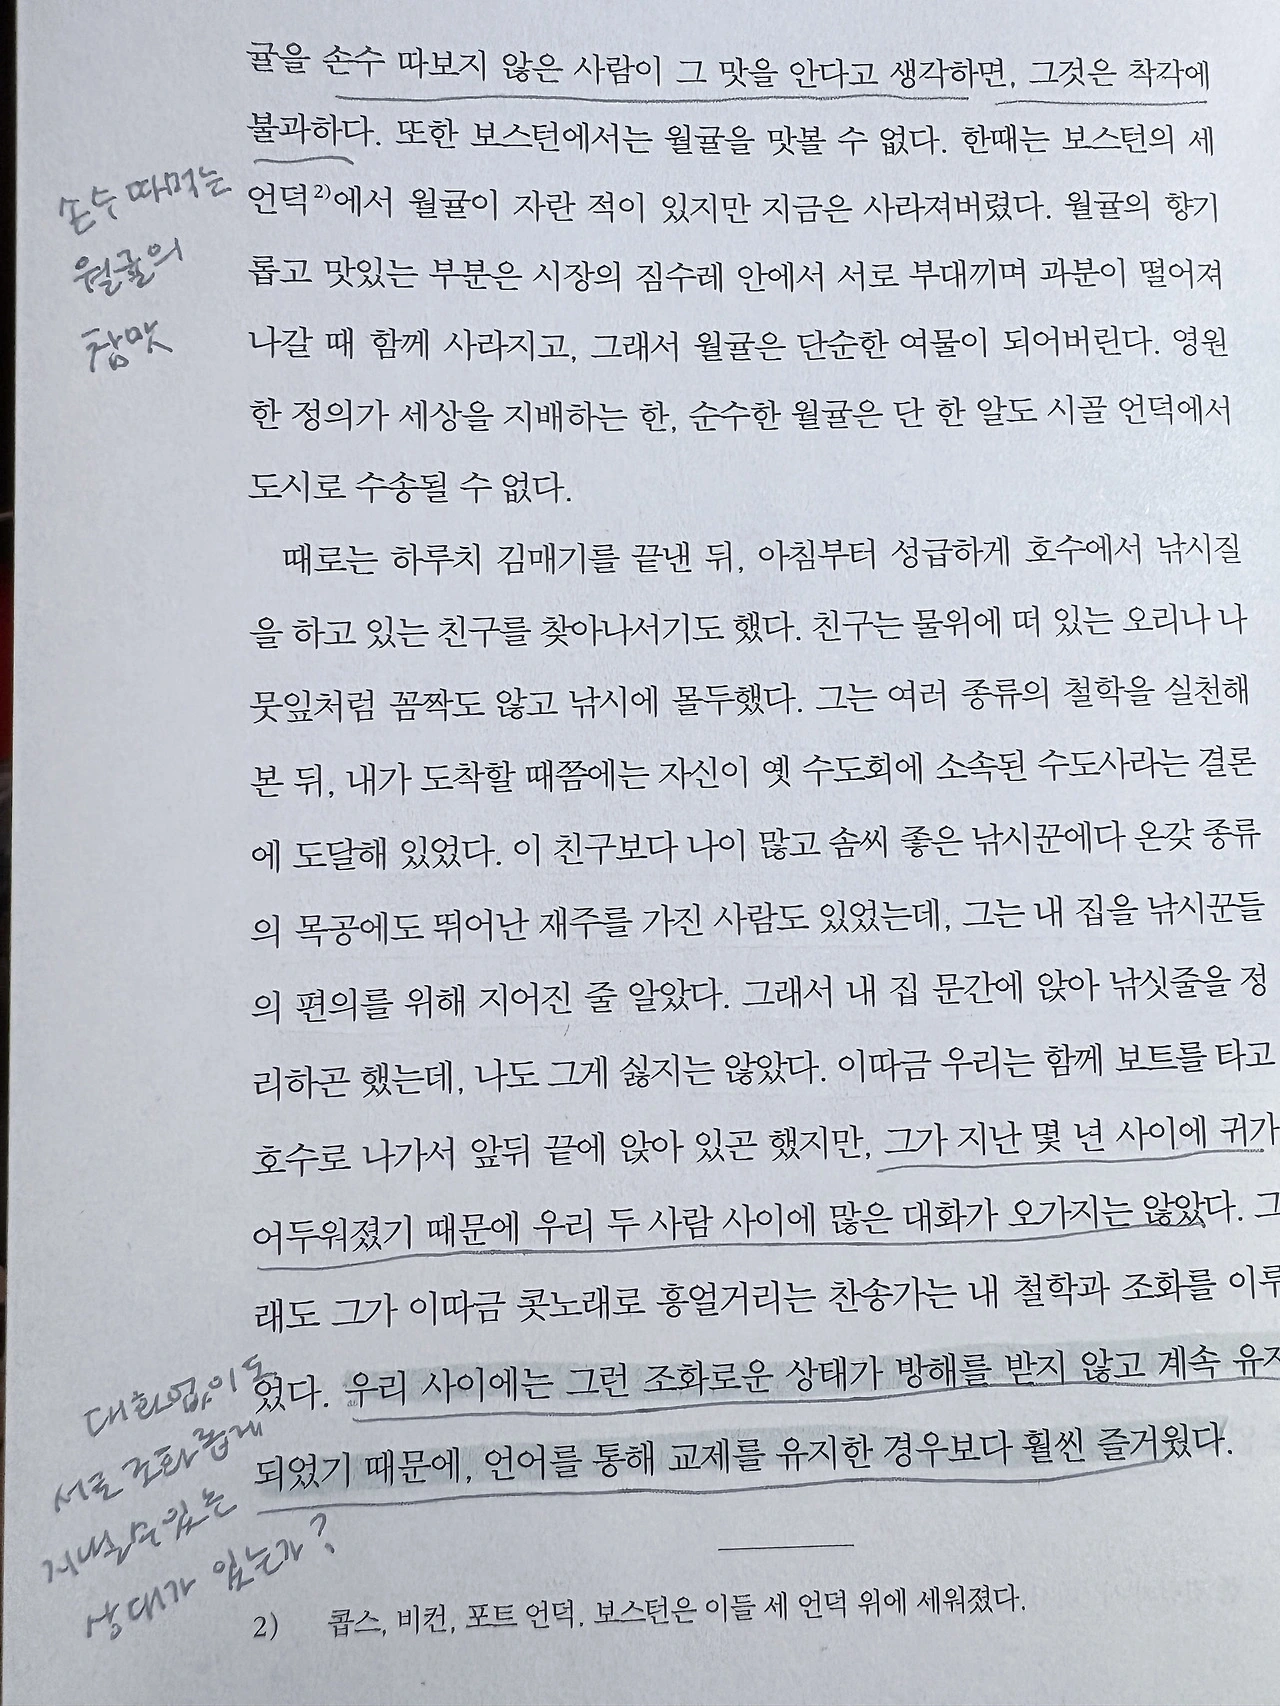 귤을 손수 따보지 않은 사람이 그 맛을 안다고 생각하면, 그것은 착각에
불과하다. 또한 보스턴에서는 월귤을 맛볼 수 없다. 한때는 보스턴의 세
언덕2)에서 월귤이 자란 적이 있지만 지금은 사라져버렸다. 월귤의 향기
롭고 맛있는 부분은 시장의 짐수레 안에서 서로 부대끼며 과분이 떨어져
나갈 때 함께 사라지고, 그래서 월귤은 단순한 여물이 되어버린다. 영원
한 정의가 세상을 지배하는 한, 순수한 월귤은 단 한 알도 시골 언덕에서
도시로 수송될 수 없다.
손수 따먹는
월귤의
참맛
때로는 하루치 김매기를 끝낸 뒤, 아침부터 성급하게 호수에서 낚시질
을 하고 있는 친구를 찾아나서기도 했다. 친구는 물위에 떠 있는 오리나 나
뭇잎처럼 꼼짝도 않고 낚시에 몰두했다. 그는 여러 종류의 철학을 실천해
본 뒤, 내가 도착할 때쯤에는 자신이 옛 수도회에 소속된 수도사라는 결론
에 도달해 있었다. 이 친구보다 나이 많고 솜씨 좋은 낚시꾼에다 온갖 종류
의 목공에도 뛰어난 재주를 가진 사람도 있었는데, 그는 내 집을 낚시꾼들
의 편의를 위해 지어진 줄 알았다. 그래서 내 집 문간에 앉아 낚싯줄을 정
리하곤 했는데, 나도 그게 싫지는 않았다. 이따금 우리는 함께 보트를 타고
호수로 나가서 앞뒤 끝에 앉아 있곤 했지만, 그가 지난 몇 년 사이에 귀가
어두워졌기 때문에 우리 두 사람 사이에 많은 대화가 오가지는 않았다. 그
래도 그가 이따금 콧노래로 흥얼거리는 찬송가는 내 철학과 조화를 이루
었다. 우리 사이에는 그런 조화로운 상태가 방해를 받지 않고 계속 유지
되었기 때문에, 언어를 통해 교제를 유지한 경우보다 훨씬 즐거웠다.
대화없이도
서로 조화롭게
지낼 수 있는
상대가 있는가?
2) 콥스, 비컨, 포트 언덕. 보스턴은 이들 세 언덕 위에 세워졌다.